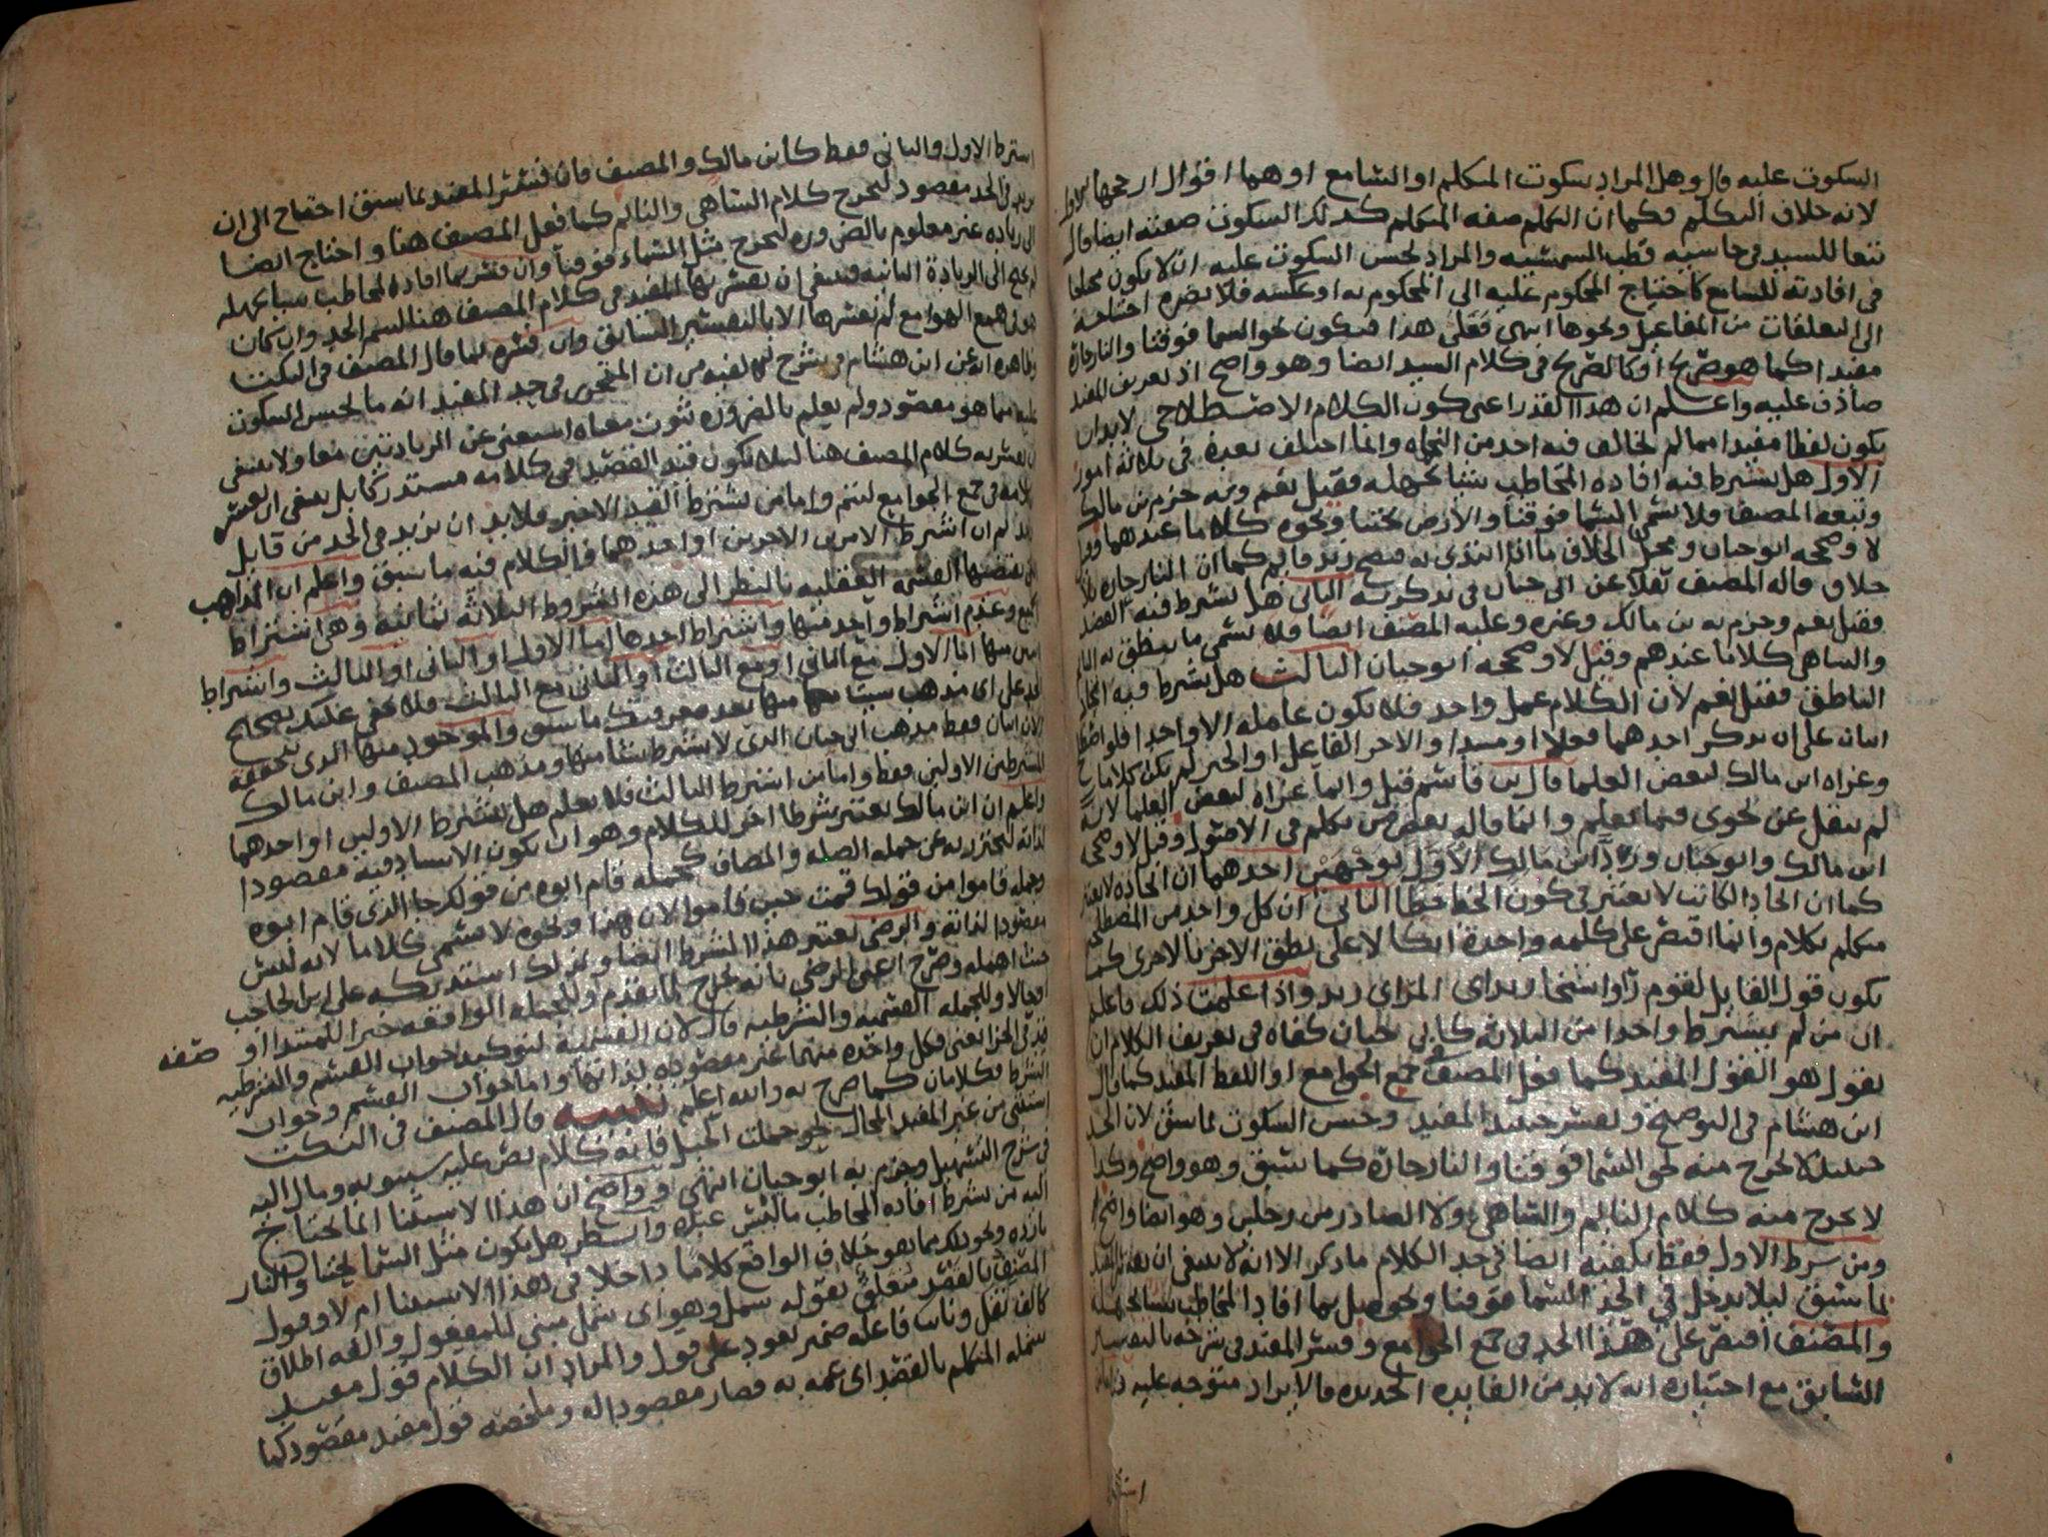 السكوت عليه قال وهل المراد سكوت المتكلم او السامع او هما اقوال ارجحها الاول
لانه خلاف التكلم فكما ان التكلم صفة المتكلم كذلك السكوت صفته ايضا قال
تبعا للسيد في حاشيه قطب الشمسيه والمراد بحسن السكوت عليه ان لا يكون محتاجا
في افادته للسامع كاحتياج المحكوم عليه الى المحكوم به او عكسه فلا يضره احتياجه
الى المتعلقات من المفاعيل ونحوها انتهى فعلى هذا فيكون نحو السما فوقنا والنار حارة
مفيدا كما هو صريح او كالصريح في كلام السيد ايضا وهو واضح اذ تعريف المفيد
صادق عليه واعلم ان هذا القدر اعني كون الكلام الاصطلاحي لا بد ان
يكون لفظا مفيدا مما لم يخالف فيه احد من النحاه وانما اختلف بعده في ثلاثة امور
الاول هل يشترط فيه افاده المخاطب شيئا يجهله فقيل نعم وبه جزم بن مالك
وتبعه المصنف فلا يسمى السما فوقنا والارض تحتنا ونحوه كلاما عندهما وقيل
لا وصححه ابو حيان ومحل الخلاف ما اذا ابتدى به فيصح زيد قايم كما ان النار حاره بلا
خلاف قاله المصنف نقلا عن ابي حيان في تذكرته الثاني هل يشترط فيه القصد
فقيل نعم وجزم به بن مالك وغيره وعليه المصنف ايضا فلا يسمى ما ينطق به النايم
والساهي كلاما عندهم وقيل لا وصححه ابو حيان الثالث هل يشترط فيه اتحاد
الناطق فقيل نعم لان الكلام عمل واحد فلا يكون عامله الا واحدا فلو اصطلح
اثنان على ان يذكر احدهما فعلا او مبتدا والاخر الفاعل او الخبر لم يكن كلاما
وعزاه ابن مالك لبعض العلما قال بن قاسم قيل وانما عزاه لبعض العلما لانه
لم ينقل عن نحوى فيما نعلم وانما قاله بعض من تكلم في الاصول وقيل لا وصححه
ابن مالك وابو حيان ورد ابن مالك الاول بوجهين احدهما ان اتحاده لا يعتبر
كما ان اتحاد الكاتب لا يعتبر في كون الخط خطا الثاني ان كل واحد من المصطلحين
متكلم بكلام وانما اقتصر على كلمه واحدة اتكالا على نطق الاخر بالاخرى كما
يكون قول القايل لقوم راوا شبحا زيد اى المراى زيد واذا علمت ذلك فاعلم
ان من لم يشترط واحدا من الثلاثه كابي حيان كفاه في تعريف الكلام ان
يقول هو القول المفيد كما فعل المصنف في جمع الجوامع او اللفظ المفيد كما قال
ابن هشام في التوضيح ويفسر حينئذ المفيد وحسن السكوت بما سبق لان الحد
حينئذ لا يخرج منه نحو السما فوقنا والنار حارة كما سبق وهو واضح وكذا
لا يخرج منه كلام النايم والساهي ولا الصادر من رجلين وهو ايضا واضح
ومن شرط الاول فقط يكفيه ايضا في حد الكلام ما ذكر الا انه لا ينبغي ان يفسر المفيد
بما سبق ليلا يدخل في الحد السما فوقنا ونحوه بل بما افاد المخاطب شيئا يجهله
والمصنف اقتصر على هذا الحد في جمع الجوامع وفسر المفيد في شرحه بالتفسير
السابق مع اختياره انه لا بد من الفايده الجديده فالايراد متوجه عليه
اشترط الاول والثاني فقط كابن مالك والمصنف فان فسر المفيد بما سبق احتاج الى ان
يزيد في الحد مقصود ليخرج كلام الساهي والنايم كما فعل المصنف هنا واحتاج ايضا
الى زياده غير معلوم بالضروره ليخرج مثل السماء فوقنا وان فسر بما افاده المخاطب شيئا يجهله
لم يحتج الى الزيادة الثانيه فينبغي ان يفسر بها المفيد في كلام المصنف هنا ليسلم الحد وان كان
هو في جمع الهوامع لم يفسرها الا بالتفسير السابق وان فسره بما قال المصنف في النكت
وظاهره انه عن ابن هشام في شرح له من ان المنتحى في حد المفيد انه ما يحسن السكوت
عليه مما هو مقصود ولم يعلم بالضروره ثبوت معناه استغنى عن الزيادتين معا ولا ينبغي
ان يفسر به كلام المصنف هنا ليلا يكون قيد القصد في كلامه مستدركا بل ينبغي ان يفسر
كلامه في جمع الجوامع ليتم واما من شرط القيد الاخير فلا بد ان يزيد في الحد من قايل
واحد ثم ان اشترط الامرين الاخرين او احدهما فالكلام فيه ما سبق واعلم ان المذاهب
التي تقتضيها القسمه العقليه بالنظر الى هذه الشروط الثلاثه ثمانية وهي اشتراط
الجميع وعدم اشتراط واحد منها واشتراط احدها اما الاول او الثاني او الثالث واشتراط
اثنين منها اما الاول مع الثاني او مع الثالث او الثاني مع الثالث فلا يخفى عليك تصحيح
الحد على اي مذهب شيت منها بعد معرفتك ما سبق والموجود منها الذي نتحققه
الان اثنان فقط مذهب ابي حيان الذي لا يشترط شيئا منها ومذهب المصنف وابن مالك
للشرطين الاولين فقط واما من اشترط الثالث فلا يعلم هل يشترط الاولين او احدهما
واعلم ان ابن مالك يعتبر شرطا اخر للكلام وهو ان يكون الاسناد فيه مقصودا
لذاته ليحترز به عن جمله الصله والمضاف كجملة قام ابوه من قولك جا الذي قام ابوه
وجمله قاموا من قولك قمت حين قاموا لان هذا ونحوه لا يسمى كلاما لانه ليس
مقصودا لذاته والرضى يعتبر هذا الشرط ايضا ولذلك استدركه على ابن الحاجب
حيث اهمله وصرح اعني الرضي بانه يخرج لما تقدم وللجمله الواقعه خبرا للمبتدا او صفه
او حالا وللجمله القسميه والشرطيه قال لان القسمية لتوكيد جواب القسم والشرطيه
قيد في الجزا يعني فكل واحده منهما غير مقصوده لذاتها واما جواب القسم وجواب
الشرط فكلامان كما صرح به والله اعلم تنبيه قال المصنف في النكت
استثنى من غير المفيد المحال نحو حملت الجبل فانه كلام نص عليه سيبويه ومال اليه
في شرح التسهيل وجزم به ابو حيان انتهى وواضح ان هذا الاستثنا انما يحتاج
اليه من شرط افاده المخاطب ما ليس عنده وانظر هل يكون مثل السما تحتنا والنار
بارده ونحو ذلك مما هو خلاف الواقع كلاما داخلا في هذا الاستثنا ام لا وقول
المصنف بالقصد متعلق بقوله شمل وهو اى شمل مبني للمفعول والفه اطلاق
كالف نقل ونايب فاعله ضمير يعود على قول والمراد ان الكلام قول مفيد
شمله المتكلم بالقصد اي عمه به فصار مقصودا له وملخصه قول مفيد مقصود كما